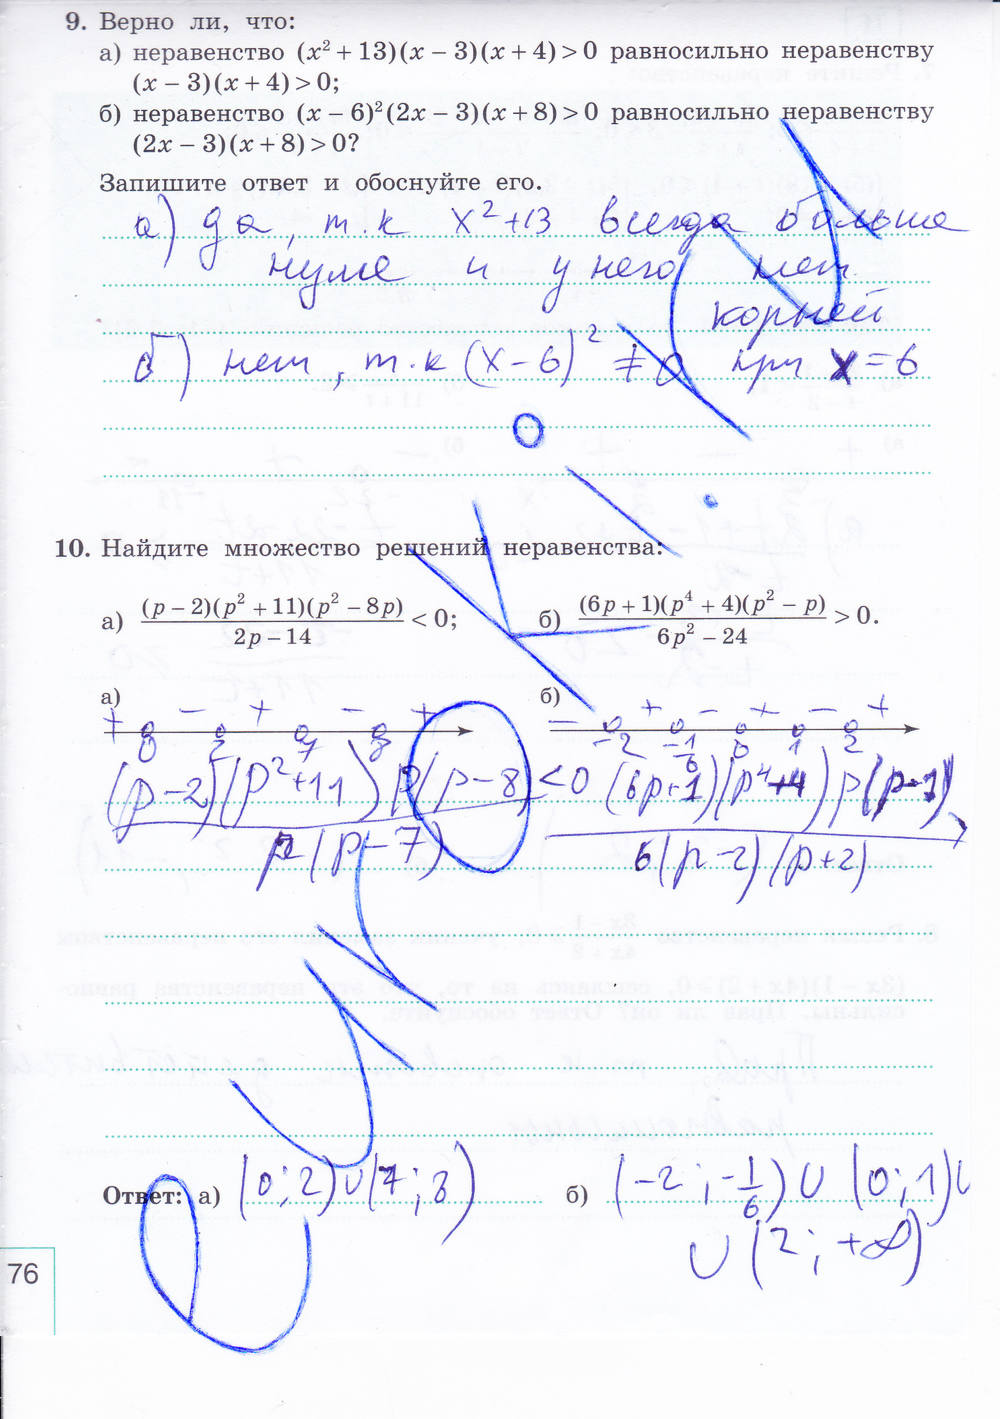 9. Верно ли, что:
а) неравенство (x² + 13)(x − 3)(x + 4) > 0 равносильно неравенству
(x − 3)(x + 4) > 0;
б) неравенство (x − 6)²(2x − 3)(x + 8) > 0 равносильно неравенству
(2x − 3)(x + 8) > 0?
Запишите ответ и обоснуйте его.
а) да, т.к x²+13 всегда больше
нуля и у него нет
корней
б) нет, т.к (x−6)² ≠ 0 при x=6
10. Найдите множество решений неравенства:
а) (p − 2)(p² + 11)(p² − 8p) / 2p − 14 < 0; б) (6p + 1)(p⁴ + 4)(p² − p) / 6p² − 24 > 0.
а) б)
+ − + − + − + − + − +
0 2 7 8 −2 −1/6 0 1 2
(p−2)(p²+11)p(p−8) < 0 (6p+1)(p⁴+4)p(p−1)
2(p−7) 6(p−2)(p+2)
Ответ: а) (0;2)∪(7;8) б) (−2;−1/6)∪(0;1)∪
∪(2;+∞)
76